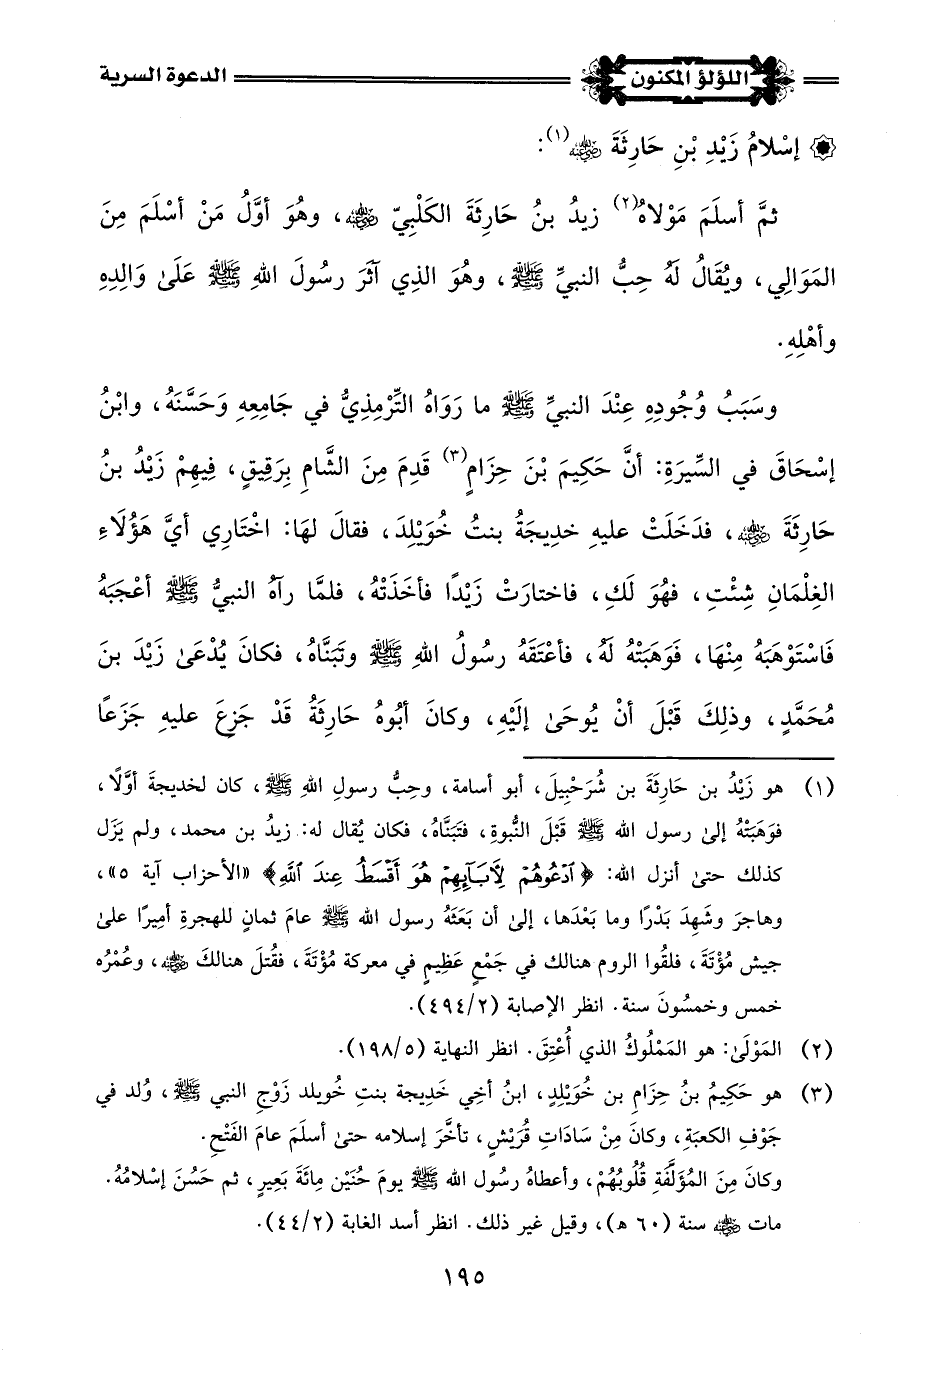 اللؤلؤ المكنون
الدعوة السرية
إسْلامُ زَيْدِ بْنِ حَارِثَةَ ﵁(١):
ثمَّ أسلَمَ مَوْلاهُ(٢) زيدُ بنُ حَارِثَةَ الكَلْبِيّ ﵁، وهُوَ أوَّلُ مَنْ أسْلَمَ مِنَ
المَوَالِي، ويُقَالُ لَهُ حِبُّ النبيِّ ﷺ، وهُوَ الذِي آثَرَ رسُولَ اللهِ ﷺ عَلَىٰ وَالِدِهِ
وأهْلِهِ.
وسَبَبُ وُجُودِهِ عِنْدَ النبيِّ ﷺ ما رَوَاهُ التِّرْمِذِيُّ في جَامِعِهِ وَحَسَّنَهُ، وابْنُ
إسْحَاقَ في السِّيرَةِ: أنَّ حَكِيمَ بْنَ حِزَامٍ(٣) قَدِمَ مِنَ الشَّامِ بِرَقِيقٍ، فِيهِمْ زَيْدُ بنُ
حَارِثَةَ ﵁، فدَخَلَتْ عليهِ خدِيجَةُ بنتُ خُوَيْلِدَ، فقالَ لهَا: اخْتَارِي أيَّ هَؤُلَاءِ
الغِلْمَانِ شِئْتِ، فهُوَ لَكِ، فاختارَتْ زَيْدًا فأخَذَتْهُ، فلمَّا رآهُ النبيُّ ﷺ أعْجَبَهُ
فَاسْتَوْهَبَهُ مِنْهَا، فَوَهَبَتْهُ لَهُ، فأعْتَقَهُ رسُولُ اللهِ ﷺ وتَبَنَّاهُ، فكانَ يُدْعَىٰ زَيْدَ بنَ
مُحَمَّدٍ، وذلِكَ قَبْلَ أنْ يُوحَىٰ إلَيْهِ، وكانَ أبُوهُ حَارِثَةُ قَدْ جَزِعَ عليهِ جَزَعًا
(١) هو زَيْدُ بن حَارِثَةَ بن شُرَحْبِيلَ، أبو أسامة، وحِبُّ رسولِ اللهِ ﷺ، كان لخديجةَ أوَّلًا،
فوَهَبَتْهُ إلىٰ رسول الله ﷺ قَبْلَ النُّبوةِ، فتَبَنَّاهُ، فكان يُقال له: زيدُ بن محمد، ولم يَزَل
كذلك حتىٰ أنزل الله: ﴿ٱدۡعُوهُمۡ لِأٓبَآئِهِمۡ هُوَ أَقۡسَطُ عِندَ ٱللَّهِ﴾ «الأحزاب آية ٥»،
وهاجرَ وشَهِدَ بَدْرًا وما بَعْدَها، إلىٰ أن بَعَثَهُ رسول الله ﷺ عامَ ثمانٍ للهجرةِ أمِيرًا علىٰ
جيش مُؤْتَةَ، فلقُوا الروم هنالك في جَمْعٍ عَظِيمٍ في معركة مُؤْتَةَ، فقُتلَ هنالكَ ﵁، وعُمْرُه
خمس وخمسُونَ سنة. انظر الإصابة (٢/٤٩٤).
(٢) المَوْلَىٰ: هو المَمْلُوكُ الذي أُعْتِقَ. انظر النهاية (٥/١٩٨).
(٣) هو حَكِيمُ بنُ حِزَامِ بن خُوَيْلِدٍ، ابنُ أخِي خَدِيجة بنتِ خُويلد زَوْجِ النبي ﷺ، وُلد في
جَوْفِ الكعبَةِ، وكانَ مِنْ سَادَاتِ قُرَيْشٍ، تأخَّرَ إسلامه حتىٰ أسلَمَ عامَ الفَتْحِ.
وكانَ مِنَ المُؤَلَّفَةِ قُلُوبُهُمْ، وأعطاهُ رسُول الله ﷺ يومَ حُنَيْن مِائَةَ بَعِيرٍ، ثم حَسُنَ إسْلامُهُ.
مات ﵁ سنة (٦٠ هـ)، وقيل غير ذلك. انظر أسد الغابة (٢/٤٤).
١٩٥